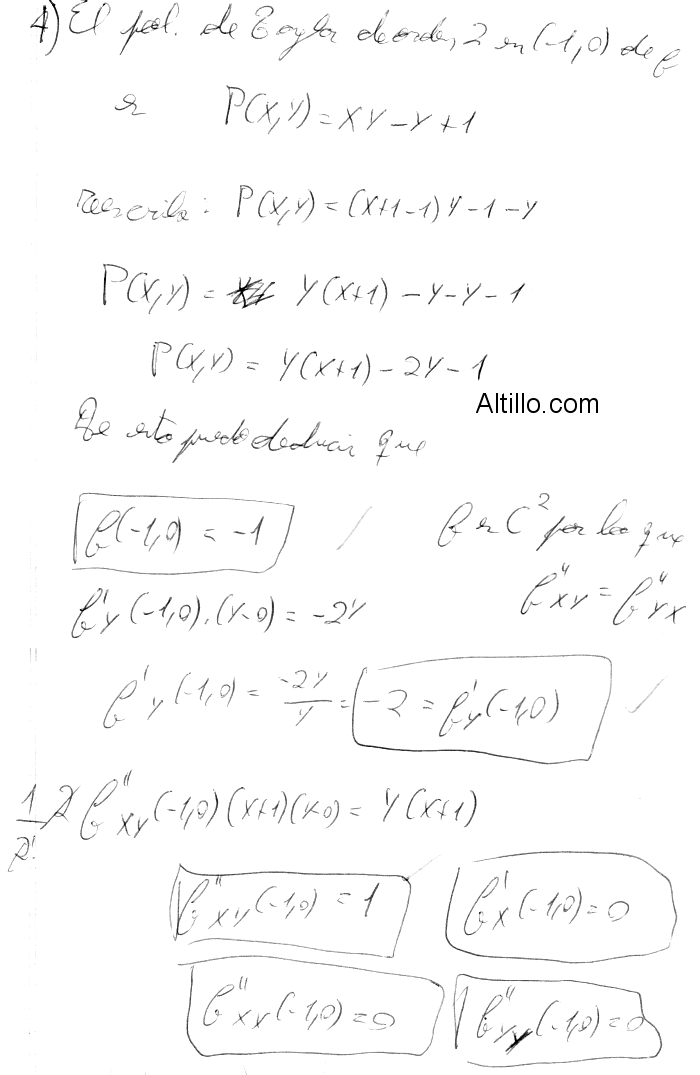 4) El pol. de Taylor de orden 2 en (-1,0) de f
es P(x,y) = xy - y + 1
reescribo: P(x,y) = (x+1-1)y - 1 - y
P(x,y) = y(x+1) - y - y - 1
P(x,y) = y(x+1) - 2y - 1
Altillo.com
De esto puedo deducir que
f(-1,0) = -1
f es C² por lo que
f''xy = f''yx
f'y(-1,0).(y-0) = -2y
f'y(-1,0) = -2y/y = -2 = f'y(-1,0)
1/2! 2 f''xy(-1,0)(x+1)(y-0) = y(x+1)
f''xy(-1,0) = 1
f'x(-1,0) = 0
f''xx(-1,0) = 0
f''yy(-1,0) = 0